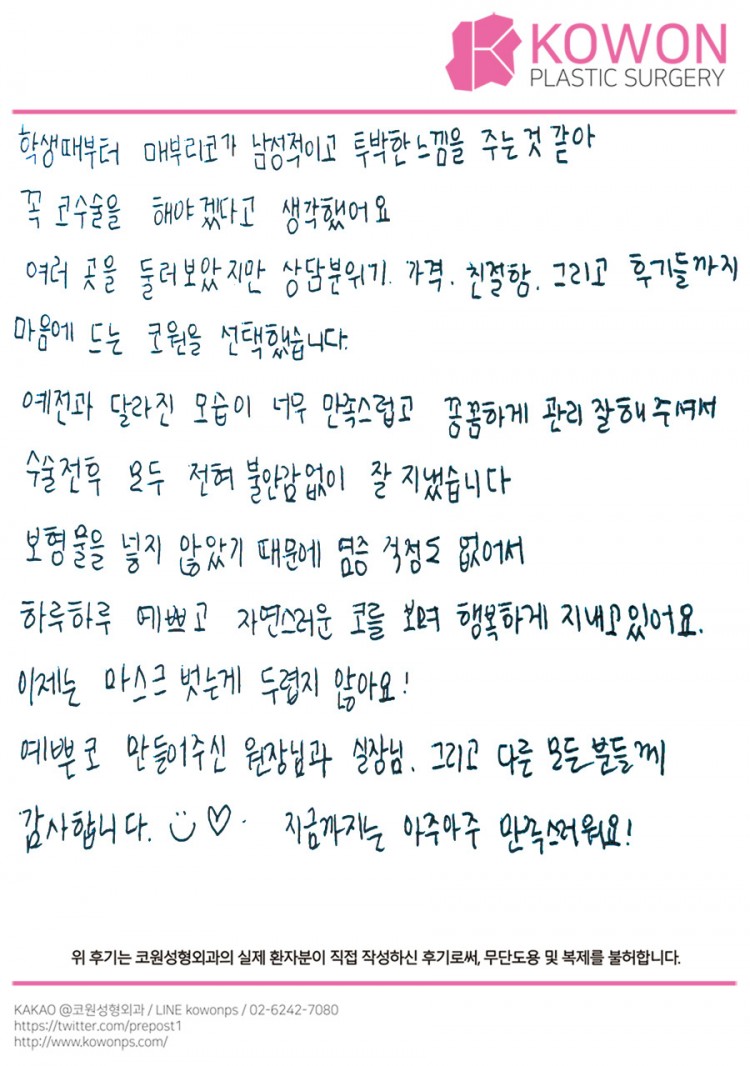 KOWON
PLASTIC SURGERY
학생때부터 매부리코가 남성적이고 투박한느낌을 주는것 같아
꼭 코수술을 해야겠다고 생각했어요
여러 곳을 둘러보았지만 상담분위기. 가격. 친절함. 그리고 후기들까지
마음에 드는 코원을 선택했습니다.
예전과 달라진 모습이 너무 만족스럽고 꼼꼼하게 관리 잘해주셔서
수술전후 모두 전혀 불안감없이 잘 지냈습니다
보형물을 넣지 않았기 때문에 염증 걱정도 없어서
하루하루 예쁘고 자연스러운 코를 보며 행복하게 지내고있어요.
이제는 마스크 벗는게 두렵지 않아요!
예쁜코 만들어주신 원장님과 실장님. 그리고 다른 모든분들께
감사합니다. 지금까지는 아주아주 만족스러워요!
위 후기는 코원성형외과의 실제 환자분이 직접 작성하신 후기로써, 무단도용 및 복제를 불허합니다.
KAKAO @코원성형외과 / LINE kowonps / 02-6242-7080
https://twitter.com/prepost1
http://www.kowonps.com/